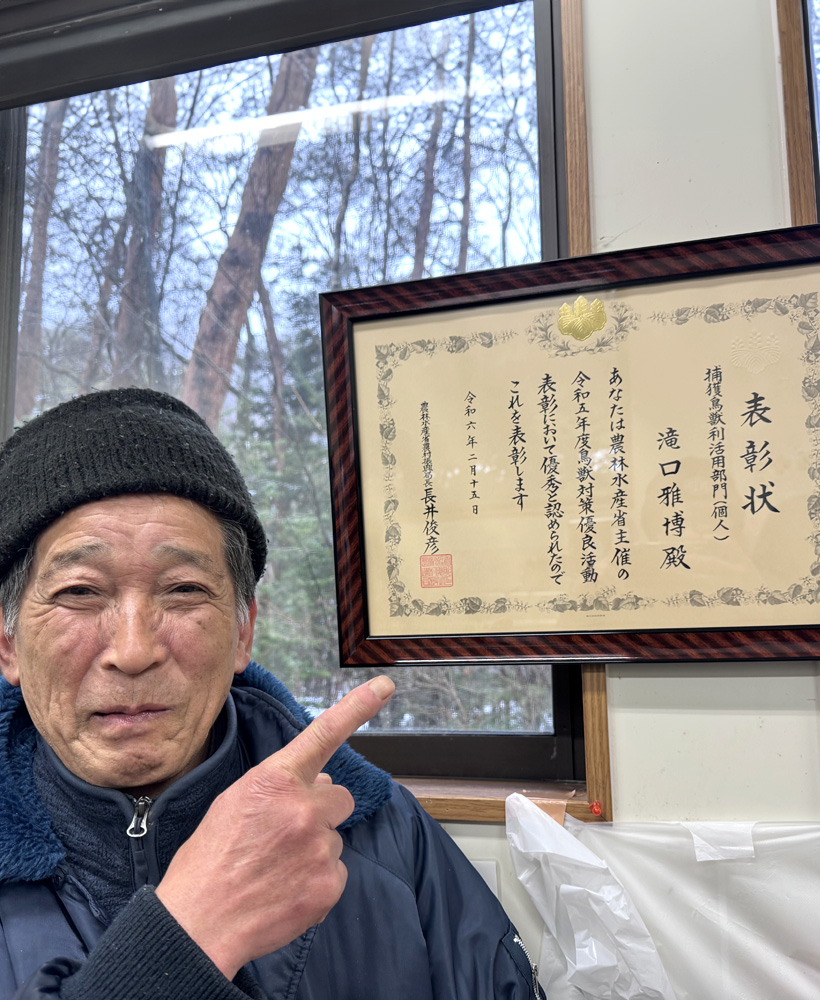 表彰状
捕獲鳥獣利活用部門（個人）
滝口雅博殿
あなたは農林水産省主催の
令和五年度鳥獣対策優良活動
表彰において優秀と認められたので
これを表彰します
令和六年二月十五日
農林水産省農村振興局長 長井俊彦